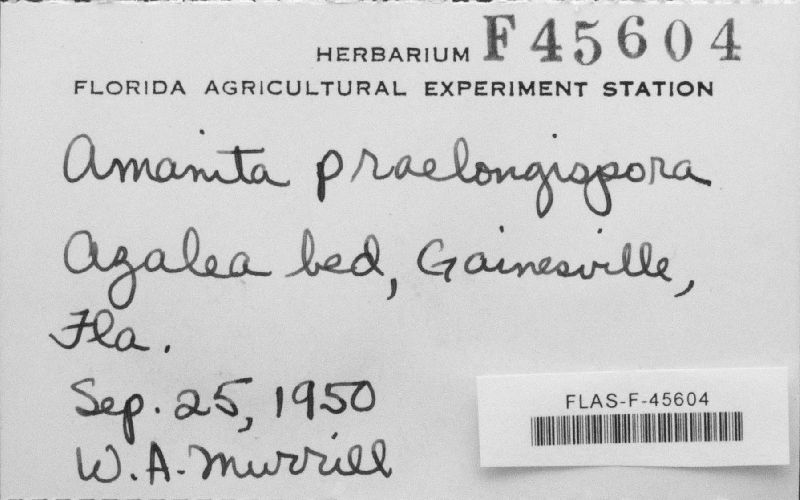 HERBARIUM F45604
FLORIDA AGRICULTURAL EXPERIMENT STATION
Amanita praelongispora
Azalea bed, Gainesville,
Fla.
Sep. 25, 1950
W.A. Murrill
FLAS-F-45604